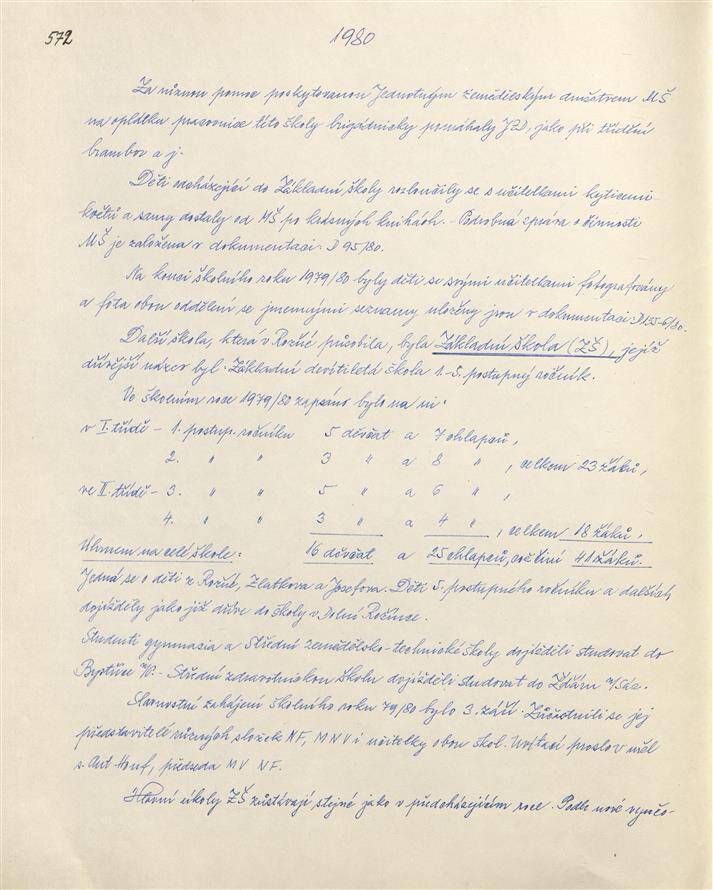 572
1980
Za různou pomoc poskytovanou Jednotným zemědělským družstvem MŠ
na oplátku pracovnice této školy brigádnicky pomáhaly JZD, jako při třídění
brambor a j.
Děti odcházející do Základní školy rozloučily se s učitelkami kyticemi
květů a samy dostaly od MŠ po krásných knihách. - Podrobná zpráva o činnosti
MŠ je založena v dokumentaci: D 95/80.
Na konci školního roku 1979/80 byly děti se svými učitelkami fotografovány
a fota obou oddělení se jmennými seznamy uloženy jsou v dokumentaci: D 135-6/80.
Další škola, která v Rožné působila, byla Základní škola (ZŠ), jejíž
dřívější název byl: Základní devítiletá škola 1.-5. postupný ročník.
Ve školním roce 1979/80 zapsáno bylo na ni:
v I. třídě - 1. postup. ročníku 5 děvčat a 7 chlapců,
2. " " 3 " a 8 " , celkem 23 žáků,
ve II. třídě - 3. " " 5 " a 6 " ,
4. " " 3 " a 4 " , celkem 18 žáků,
Úhrnem na celé škole: 16 děvčat a 25 chlapců, což činí 41 žáků.
Jedná se o děti z Rožné, Zlatkova a Josefova. Děti 5. postupného ročníku a dalších,
dojížděly jako již dříve do školy v Dolní Rožínce.
Studenti gymnasia a Střední zemědělsko-technické školy dojížděli studovat do
Bystřice n/P. - Střední zdravotnickou školu dojížděli studovat do Žďáru n/Sáz.
Slavnostní zahájení školního roku 79/80 bylo 3. září. Zúčastnili se jej
představitelé různých složek NF, MNV i učitelky obou škol. Uvítací proslov měl
s. Ant. Houf, předseda MV NF.
Hlavní úkoly ZŠ zůstávají stejné jako v předcházejícím roce. Podle nové vyučo-